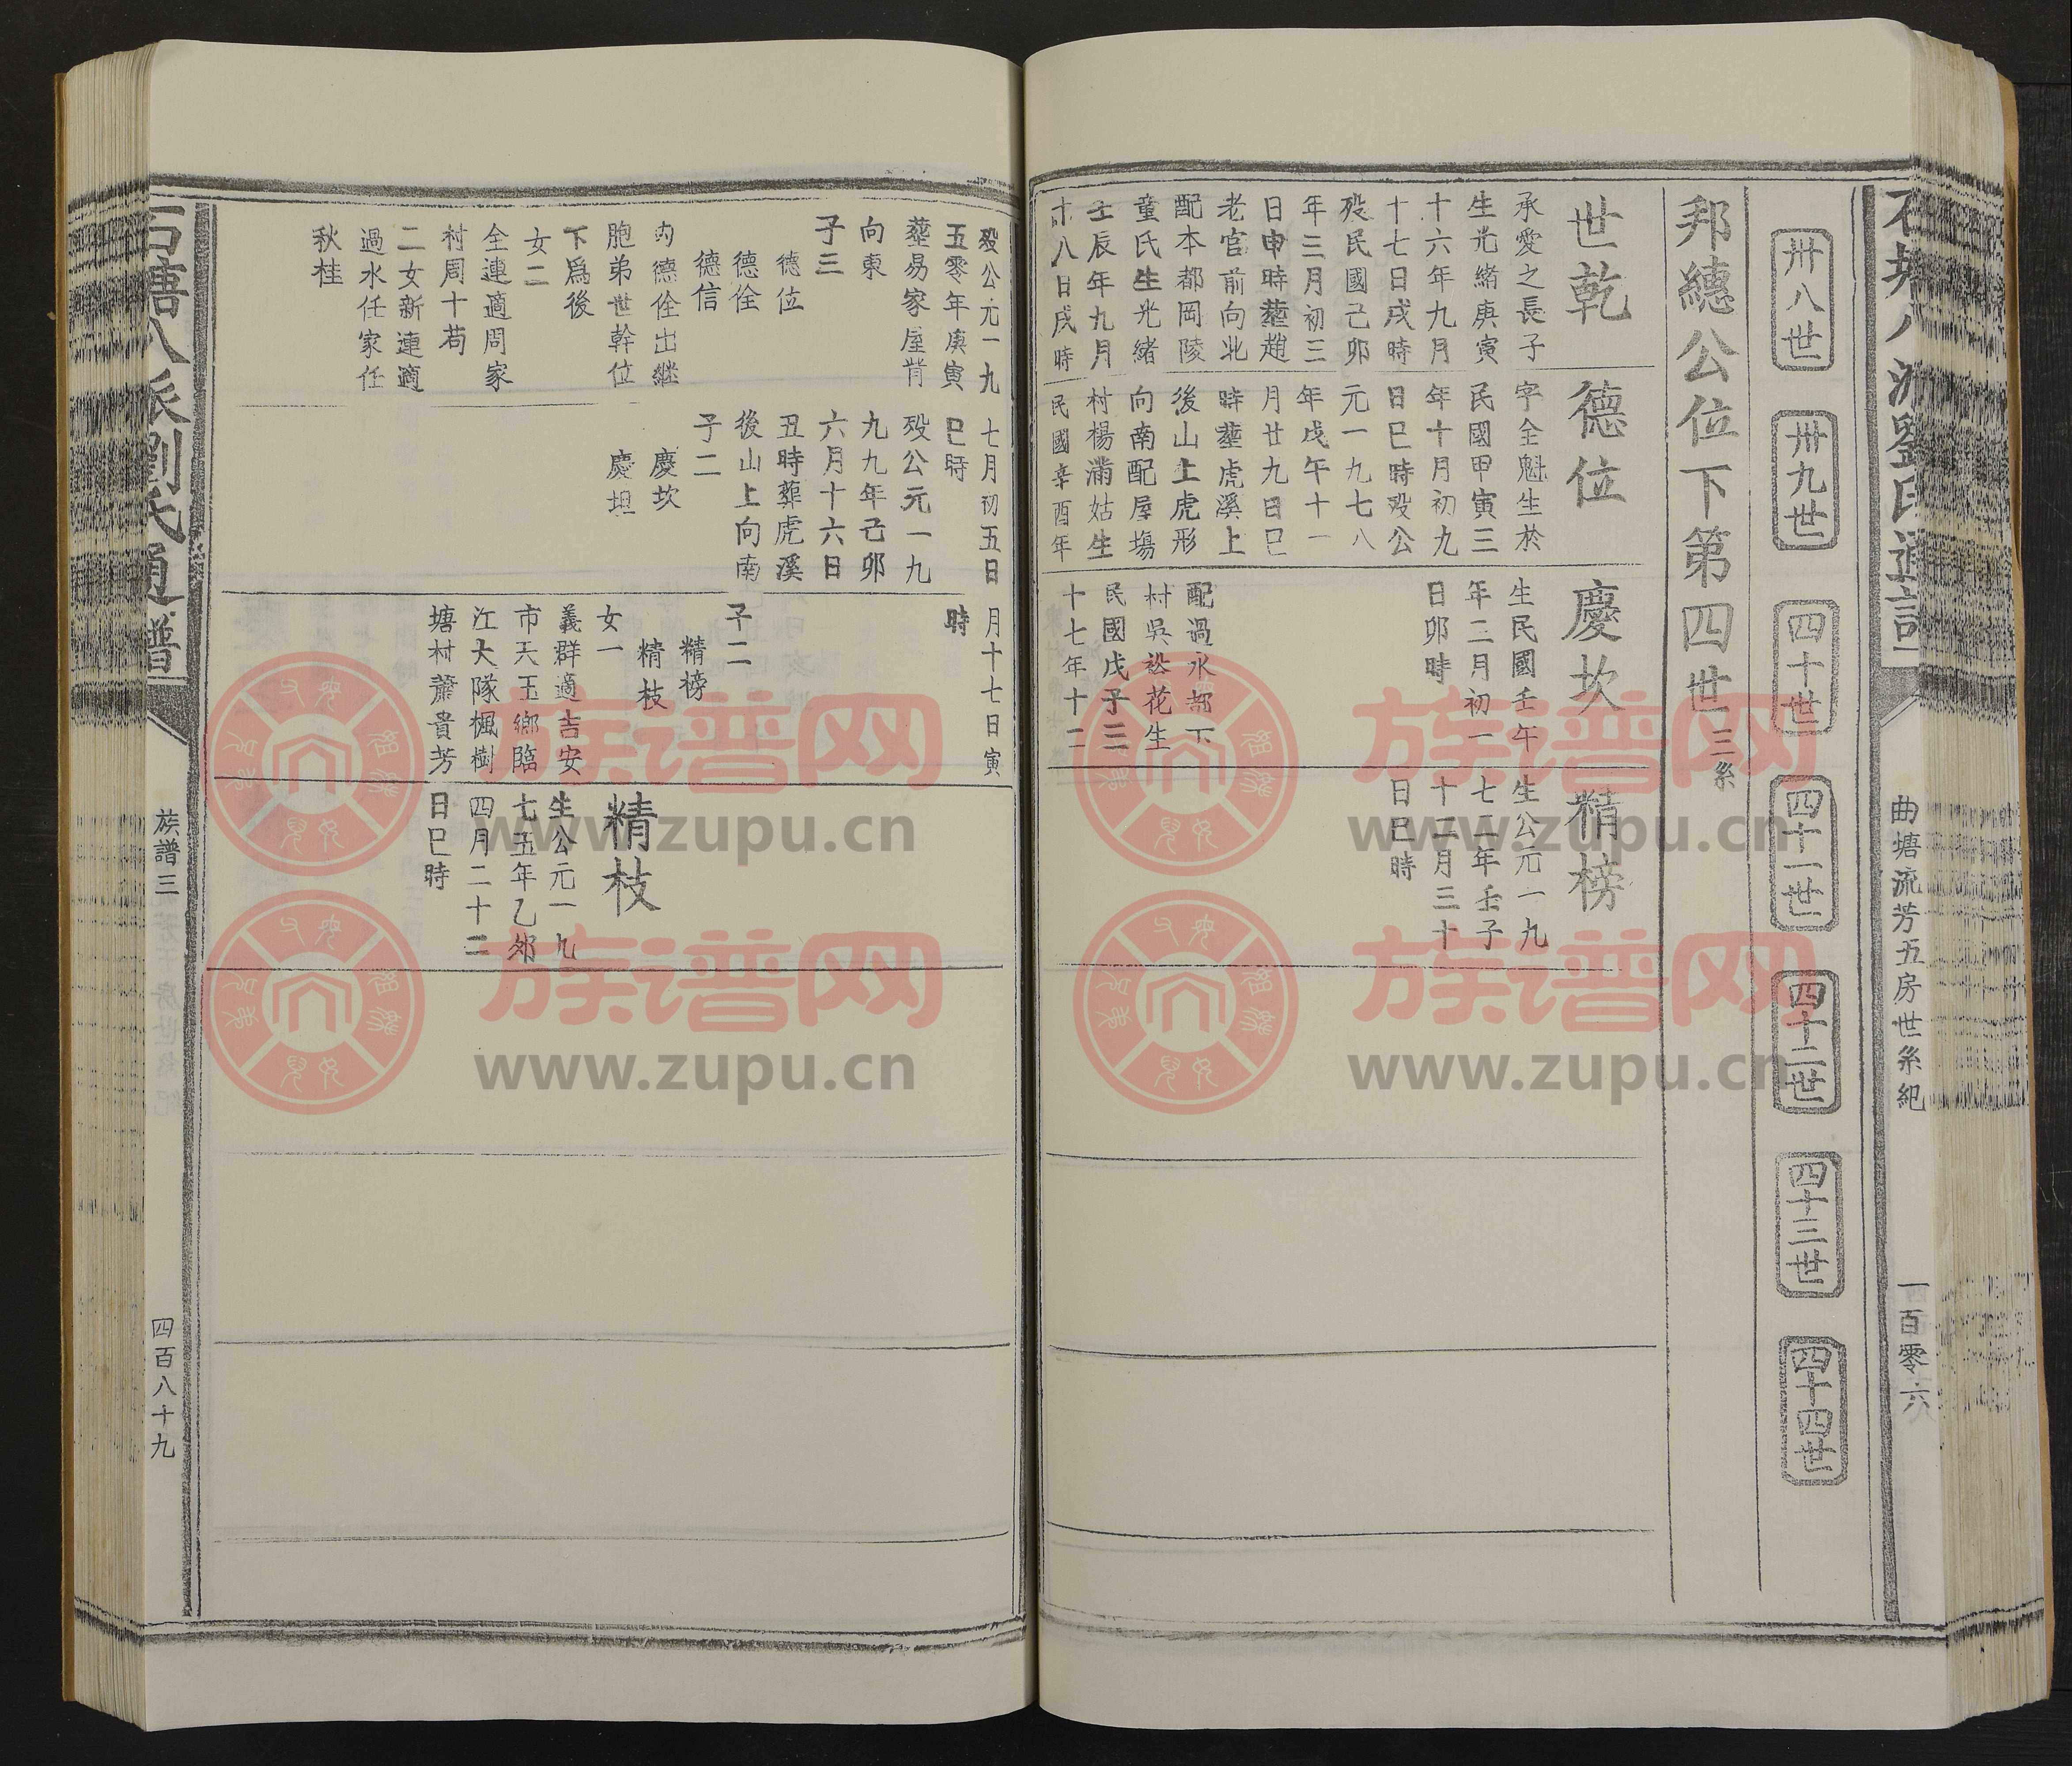 曲塘流芳五房世系紀
一百零六
卅八世
卅九世
四十世
四十一世
四十二世
四十三世
四十四世
邦總公位下第四世三系
世乾
承愛之長子
生光緒庚寅
十六年九月
十七日戌時
歿民國己卯
年三月初三
日申時塟趙
老官前向北
配本都岡陵
童氏生光緒
壬辰年九月
十八日戌時
歿公元一九
五零年庚寅
塟易家屋背
向東
子三
德位
德佺
德信
內德佺出繼
胞弟世幹位
下爲後
女二
全連適周家
村周十苟
二女新連適
過水任家任
秋桂
德位
字全魁生於
民國甲寅三
年十月初九
日巳時歿公
元一九七八
年戊午十一
月廿九日巳
時塟虎溪上
後山上虎形
向南配屋塲
村楊滿姑生
民國辛酉年
七月初五日
巳時
歿公元一九
九九年己卯
六月十六日
丑時葬虎溪
後山上向南
子二
慶坎
慶坦
慶坎
生民國壬午
年二月初一
日卯時
配過水都下
村吳崧花生
民國戊子三
十七年十二
月十七日寅
時
子二
精榜
精枝
女一
義群適吉安
市天玉鄉臨
江大隊楓樹
塘村蕭貴芳
精榜
生公元一九
七二年壬子
十二月三十
日巳時
精枝
生公元一九
七五年乙卯
四月二十二
日巳時
石塘八派劉氏通譜
族譜三
四百八十九
族谱网
www.zupu.cn
族谱网
www.zupu.cn
族谱网
www.zupu.cn
族谱网
www.zupu.cn